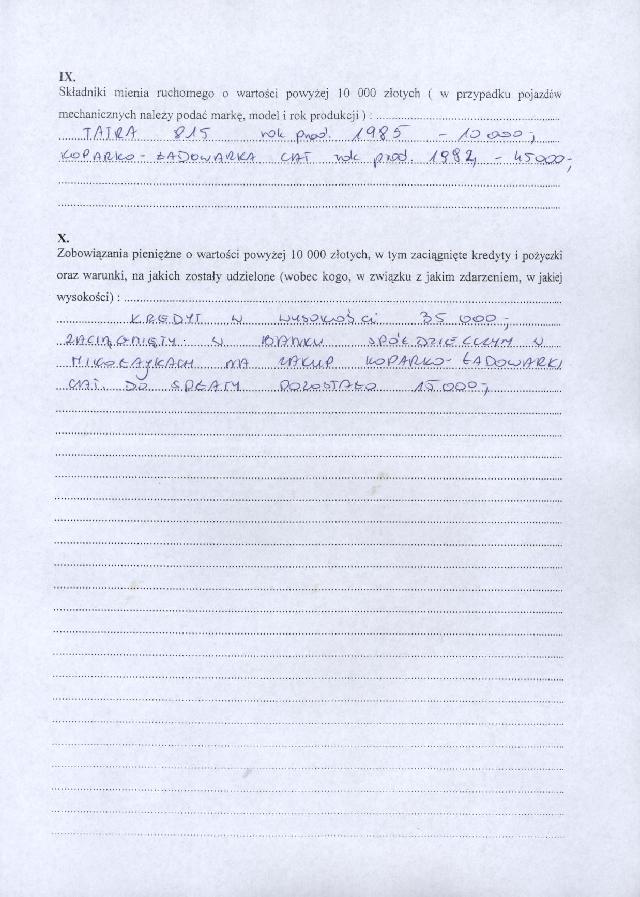 IX.
Składniki mienia ruchomego o wartości powyżej 10 000 złotych ( w przypadku pojazdów
mechanicznych należy podać markę, model i rok produkcji ) :
TATRA 815 rok prod. 1985 - 10 000,-
KOPARKO-ŁADOWARKA CAT rok prod. 1982, - 45000,-
X.
Zobowiązania pieniężne o wartości powyżej 10 000 złotych, w tym zaciągnięte kredyty i pożyczki
oraz warunki, na jakich zostały udzielone (wobec kogo, w związku z jakim zdarzeniem, w jakiej
wysokości) :
KREDYT W WYSOKOŚCI 35 000,-
ZACIĄGNIĘTY W BANKU SPÓŁDZIELCZYM W
MIKOŁAJKACH NA ZAKUP KOPARKO-ŁADOWARKI
CAT. DO SPŁATY POZOSTAŁO 15 000,-